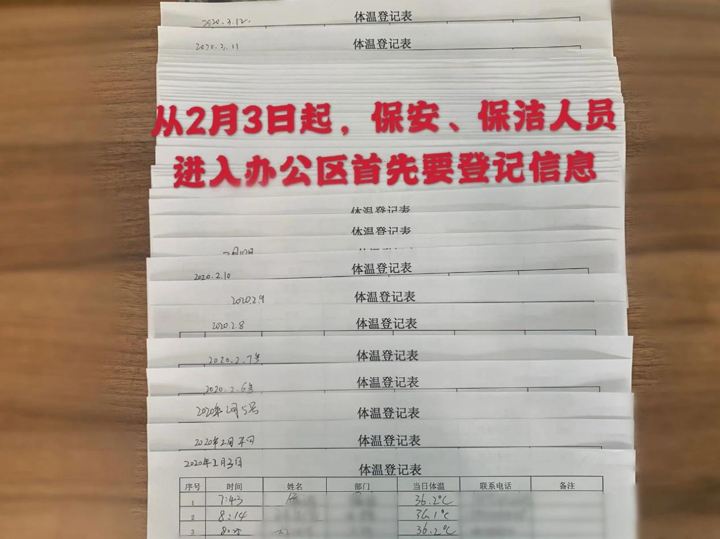 2020.3.12.
体温登记表
2020.3.11
体温登记表
从2月3日起，保安、保洁人员
进入办公区首先要登记信息
体温登记表
体温登记表
体温登记表
2020.2.10
体温登记表
2020.2.9
体温登记表
2020.2.8
体温登记表
2020.2.7号
体温登记表
2020.2.6号
体温登记表
2020年2月5号
体温登记表
2020年2月
体温登记表
2020年2月3日
体温登记表
序号 时间 姓名 部门 当日体温 联系电话 备注
1 7:43 36.2℃
2 8:14 36.1℃
3 36.2℃